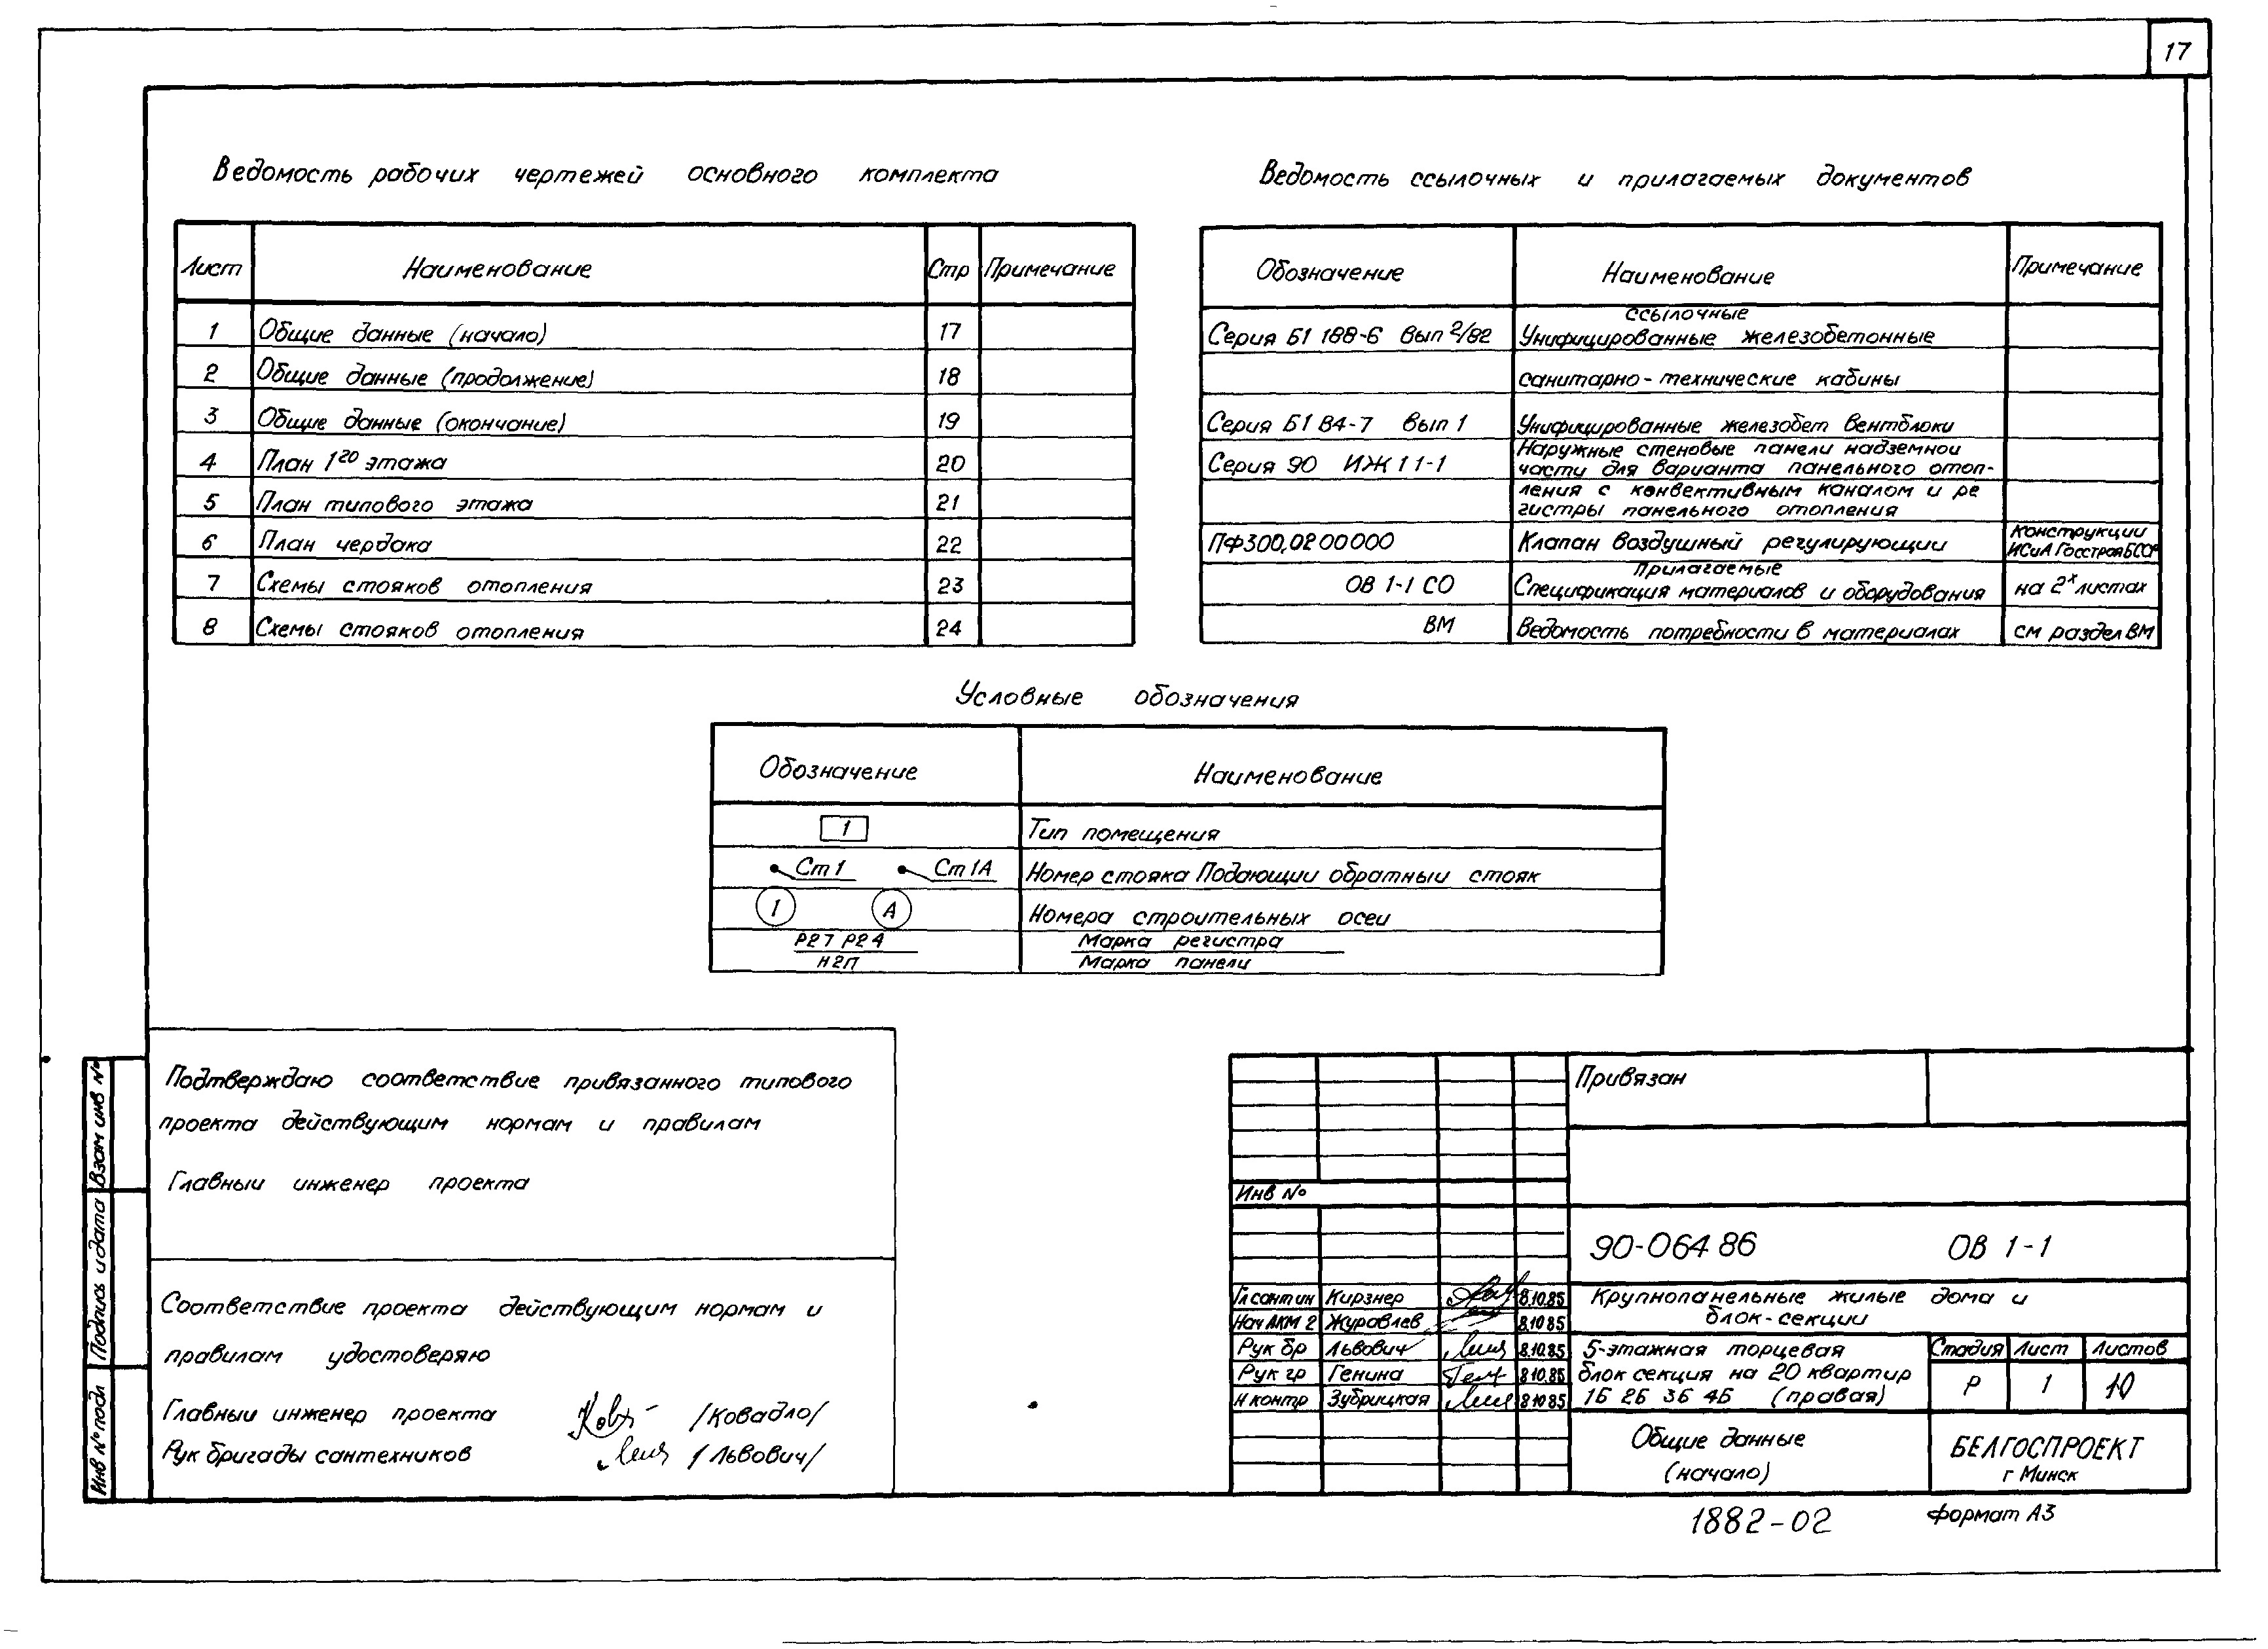 17
Ведомость рабочих чертежей основного комплекта
Лист Наименование Стр Примечание
1 Общие данные (начало) 17
2 Общие данные (продолжение) 18
3 Общие данные (окончание) 19
4 План 1го этажа 20
5 План типового этажа 21
6 План чердака 22
7 Схемы стояков отопления 23
8 Схемы стояков отопления 24
Ведомость ссылочных и прилагаемых документов
Обозначение Наименование Примечание
ссылочные
Серия Б1 188-6 вып 2/82 Унифицированные железобетонные
санитарно-технические кабины
Серия Б1 В4-7 вып 1 Унифицированные железобет вентблоки
Серия 90 ИЖ 1 1-1 Наружные стеновые панели надземной
части для варианта панельного отоп-
ления с конвективным каналом и ре
гистры панельного отопления
ПФ300.0200000 Клапан воздушный регулирующии Конструкции
ИСиА Госстроя БССР
Прилагаемые
ОВ 1-1 СО Спецификация материалов и оборудования на 2х листах
ВМ Ведомость потребности в материалах см раздел ВМ
Условные обозначения
Обозначение Наименование
1 Тип помещения
Ст1 Ст1А Номер стояка Подающии обратныи стояк
1 А Номера строительных осеи
Р27 Р24 Марка регистра
Н2П Марка панели
Подтверждаю соответствие привязанного типового
проекта действующим нормам и правилам
Главныи инженер проекта
Соответствие проекта действующим нормам и
правилам удостоверяю
Главныи инженер проекта /Ковадло/
Рук бригады сантехников /Львович/
Взам инв №
Подпись и дата
Инв № подл
Привязан
Инв №
90-064 86 ОВ 1-1
Гл сантин Кирзнер 8.10.85
Нач АКМ 2 Журавлев 8.10 85
Рук бр Львович 8.10.85
Рук гр Генина 8 10.85
Н контр Зубрицкая 8 10 85
Крупнопанельные жилые дома и
блок-секции
5-этажная торцевая
блок секция на 20 квартир
1Б 2Б 3Б 4Б (правая)
Стадия Лист Листов
Р 1 10
Общие данные
(начало)
БЕЛГОСПРОЕКТ
г Минск
1882-02
формат А3